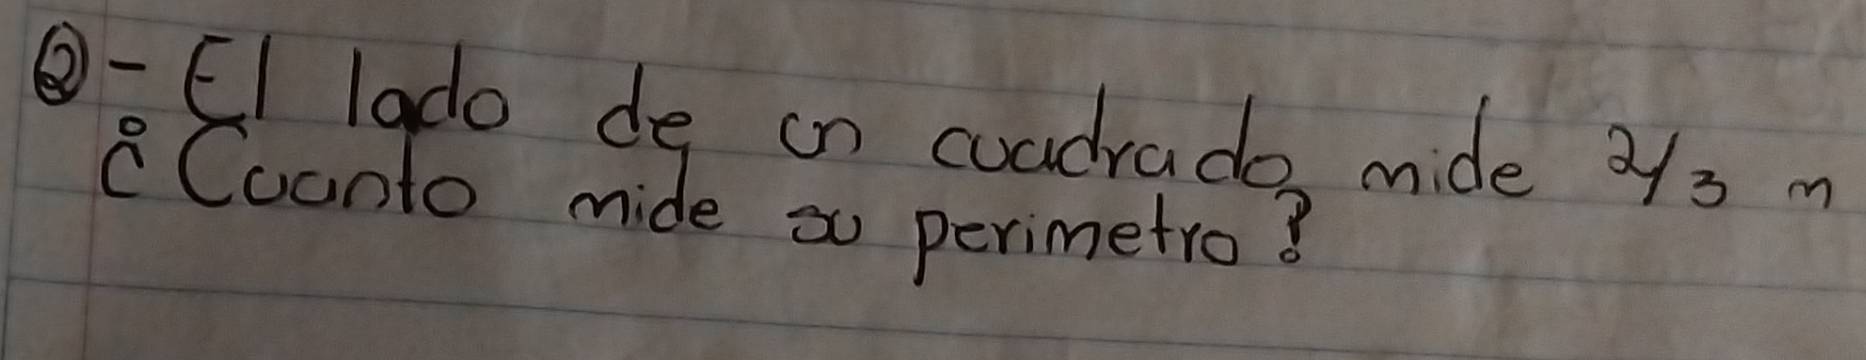 ②- El lado de un cuadrado mide 2/3 m
¿Cuanto mide su perimetro?